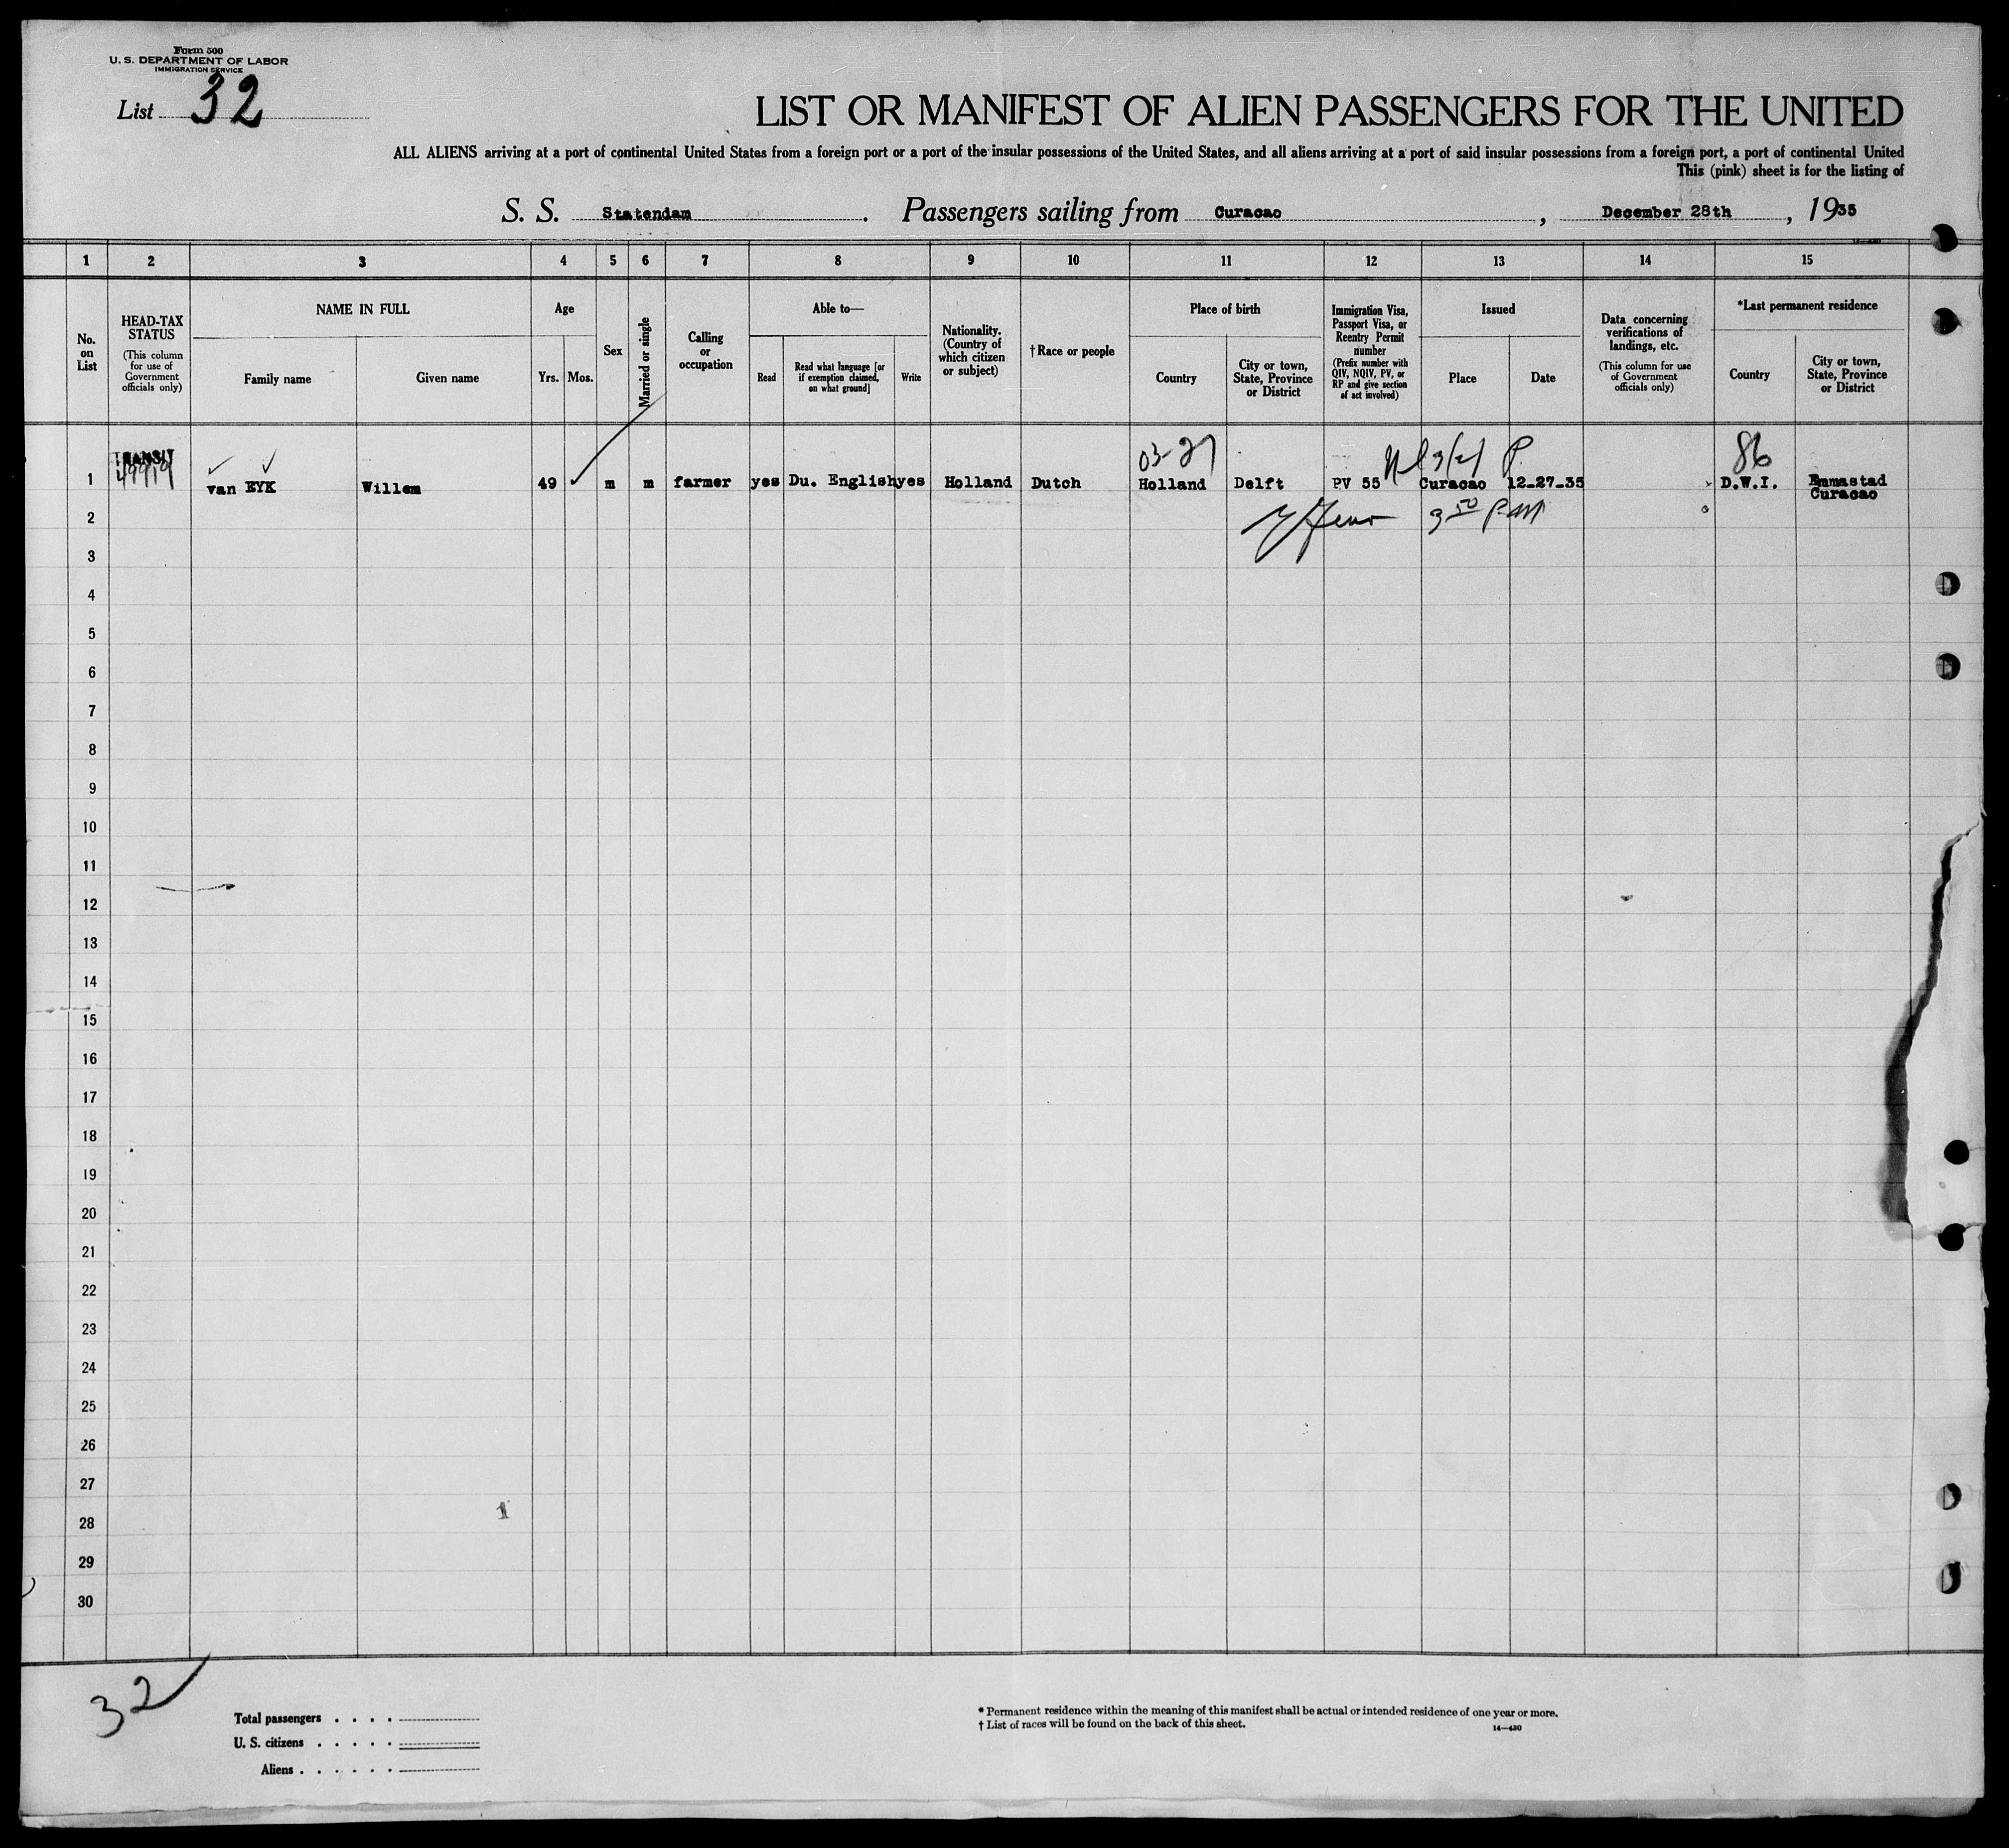 Form 500
U. S. DEPARTMENT OF LABOR
IMMIGRATION SERVICE
List 32
LIST OR MANIFEST OF ALIEN PASSENGERS FOR THE UNITED
ALL ALIENS arriving at a port of continental United States from a foreign port or a port of the insular possessions of the United States, and all aliens arriving at a port of said insular possessions from a foreign port, a port of continental United
This (pink) sheet is for the listing of
S. S. Statendam. Passengers sailing from Curacao, December 28th, 1935
1 2 3 4 5 6 7 8 9 10 11 12 13 14 15
No. on List
HEAD-TAX STATUS
(This column for use of Government officials only)
NAME IN FULL
Family name
Given name
Age
Yrs.
Mos.
Sex
Married or single
Calling or occupation
Able to—
Read
Read what language [or if exemption claimed, on what ground]
Write
Nationality. (Country of which citizen or subject)
† Race or people
Place of birth
Country
City or town, State, Province or District
Immigration Visa, Passport Visa, or Reentry Permit number
(Prefix number with QIV, NQIV, PV, or RP and give section of act involved)
Issued
Place
Date
Data concerning verifications of landings, etc.
(This column for use of Government officials only)
*Last permanent residence
Country
City or town, State, Province or District
TRANSIT
03-27
86
1 van EYK Willem 49 m m farmer yes Du. English yes Holland Dutch Holland Delft PV 55 Curacao 12-27-35 D.W.I. Emmastad
Curacao
2
3
4
5
6
7
8
9
10
11
12
13
14
15
16
17
18
19
20
21
22
23
24
25
26
27
1
28
29
30
32
Total passengers . . . .
U. S. citizens . . . . .
Aliens . . . . . .
* Permanent residence within the meaning of this manifest shall be actual or intended residence of one year or more.
† List of races will be found on the back of this sheet.
14—430